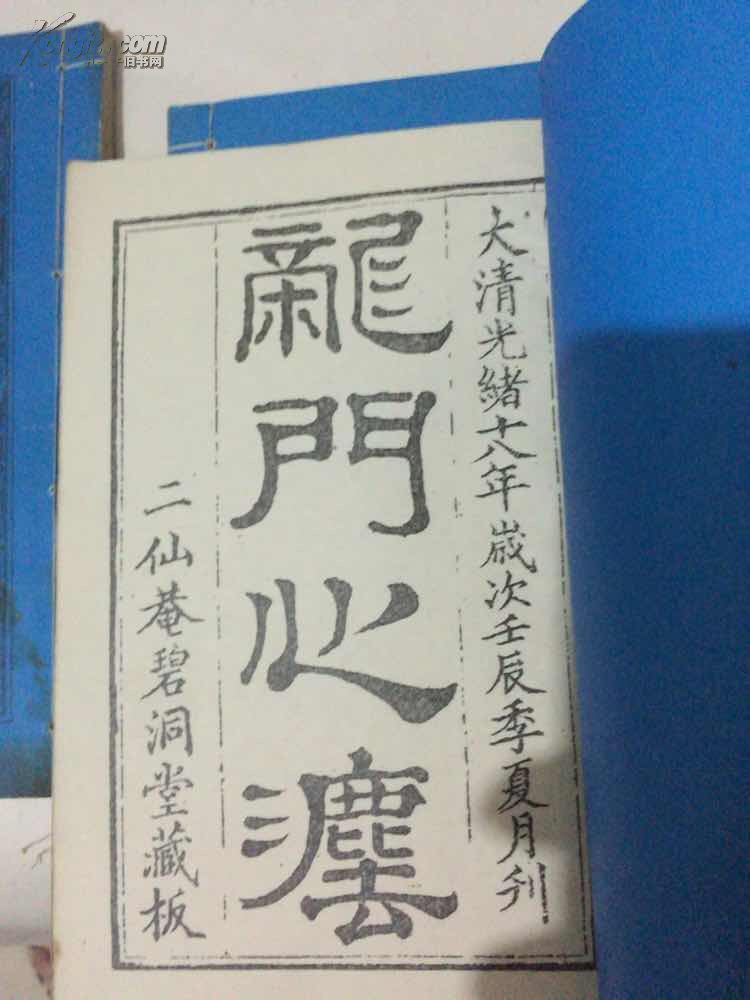 大清光緒十八年歲次壬辰季夏月刋
龍門心灋
二仙菴碧洞堂藏板
旧书网